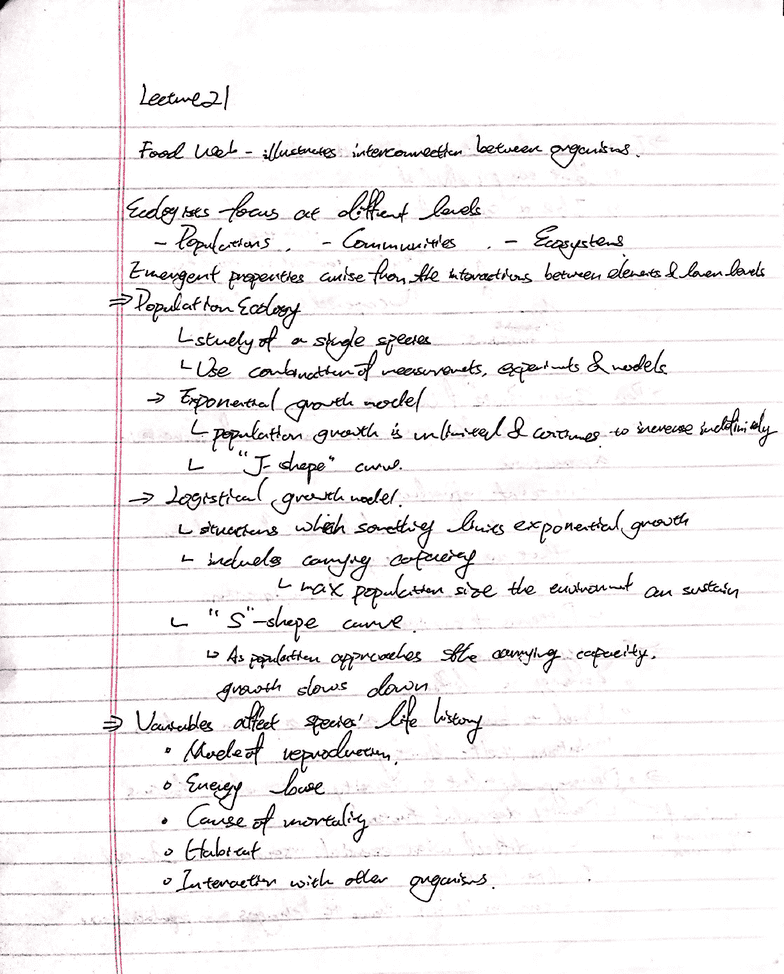 Lecture 21
Food Web - illustrates interconnection between organisms.
Ecologists focus at different levels
- Populations. - Communities. - Ecosystems
Emergent properties arise from the interactions between elements & lower levels
⇒ Population Ecology
└ study of a single species
└ Use combination of measurements, experiments & models
→ Exponential growth model
└ population growth is unlimited & continues to increase indefinitely
└ "J-shape" curve.
→ Logistical growth model.
└ situations which something limits exponential growth
└ includes carrying capacity
└ max population size the environment can sustain
└ "S"-shape curve.
└ As population approaches the carrying capacity,
growth slows down
⇒ Variables affect species' life history
• Mode of reproduction.
• Energy base
• Cause of mortality
• Habitat
• Interaction with other organisms.